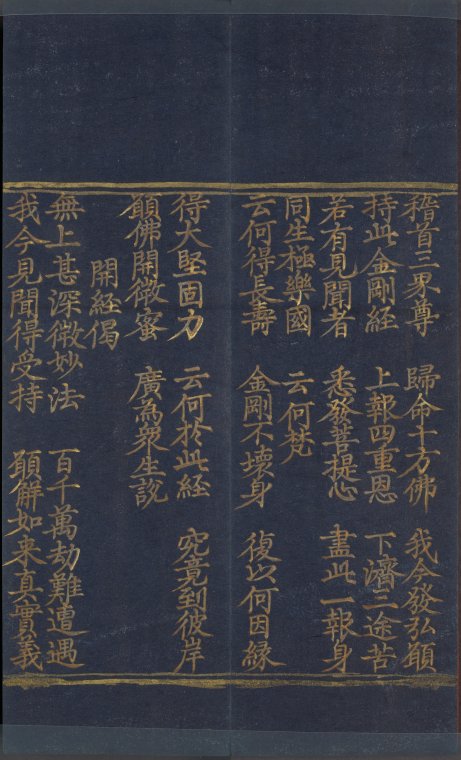 稽首三界尊　歸命十方佛　我今發弘願
持此金剛經　上報四重恩　下濟三途苦
若有見聞者　悉發菩提心　盡此一報身
同生極樂國　云何梵
云何得長壽　金剛不壞身　復以何因緣
得大堅固力　云何於此經　究竟到彼岸
願佛開微蜜　廣為眾生說
開經偈
無上甚深微妙法　百千萬劫難遭遇
我今見聞得受持　願解如来真實義